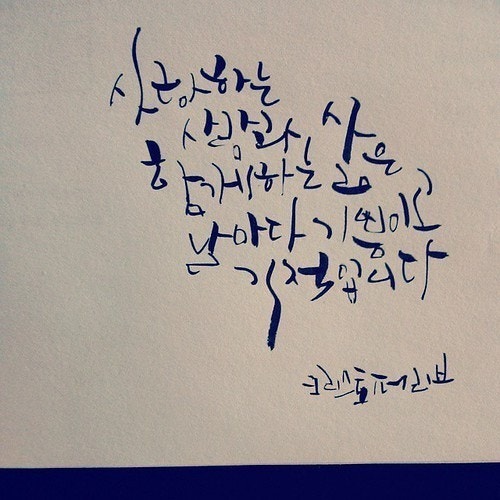 사랑하는
사람과
함께하는 삶은
날마다 기쁨이고
기적입니다
크리스토퍼 리브